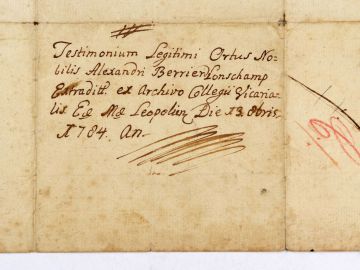 Testimonium Legitimi Ortus No-
bilis Alexandri Berrier Lonschamp
Extradit: ex Archivo Collegii Vicaria-
lis Ecc Leopolien Die 13 8bris
1784 An
198